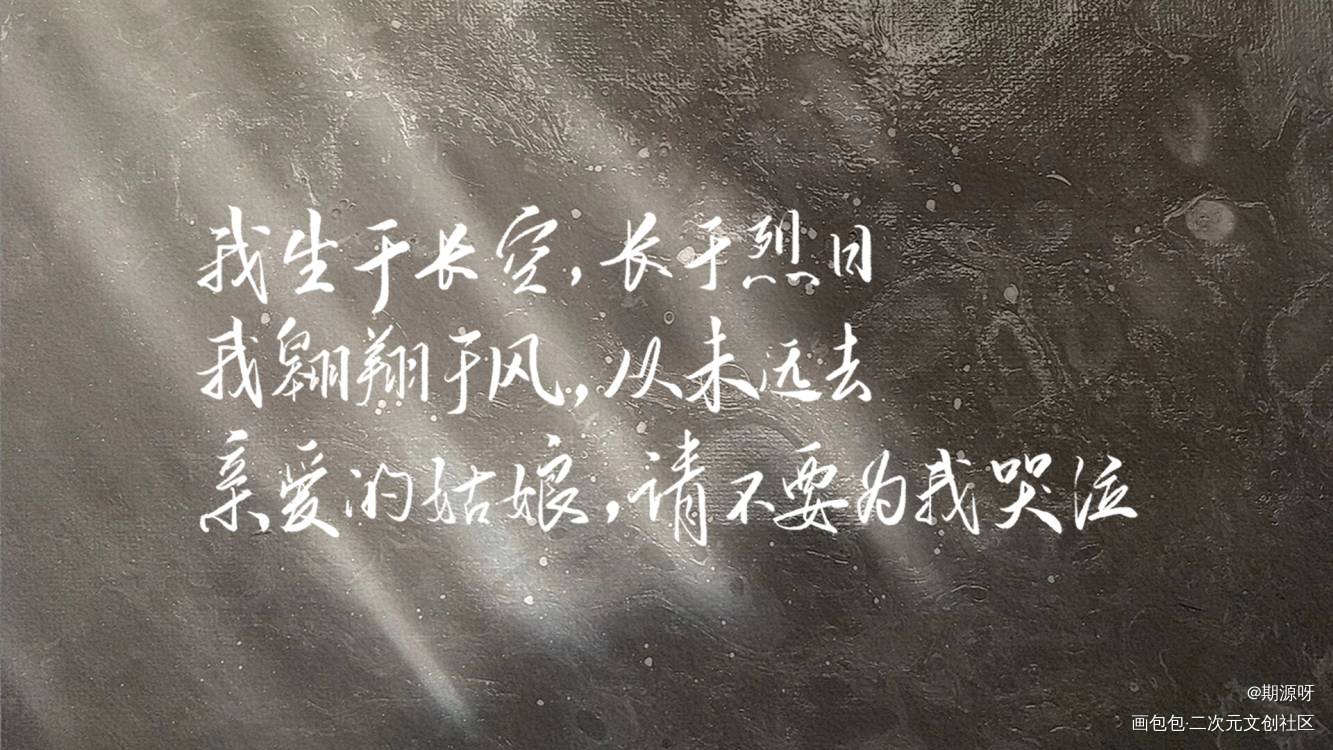 我生于长空，长于烈日
我翱翔于风，从未远去
亲爱的姑娘，请不要为我哭泣
@期源呀
画包包·二次元文创社区